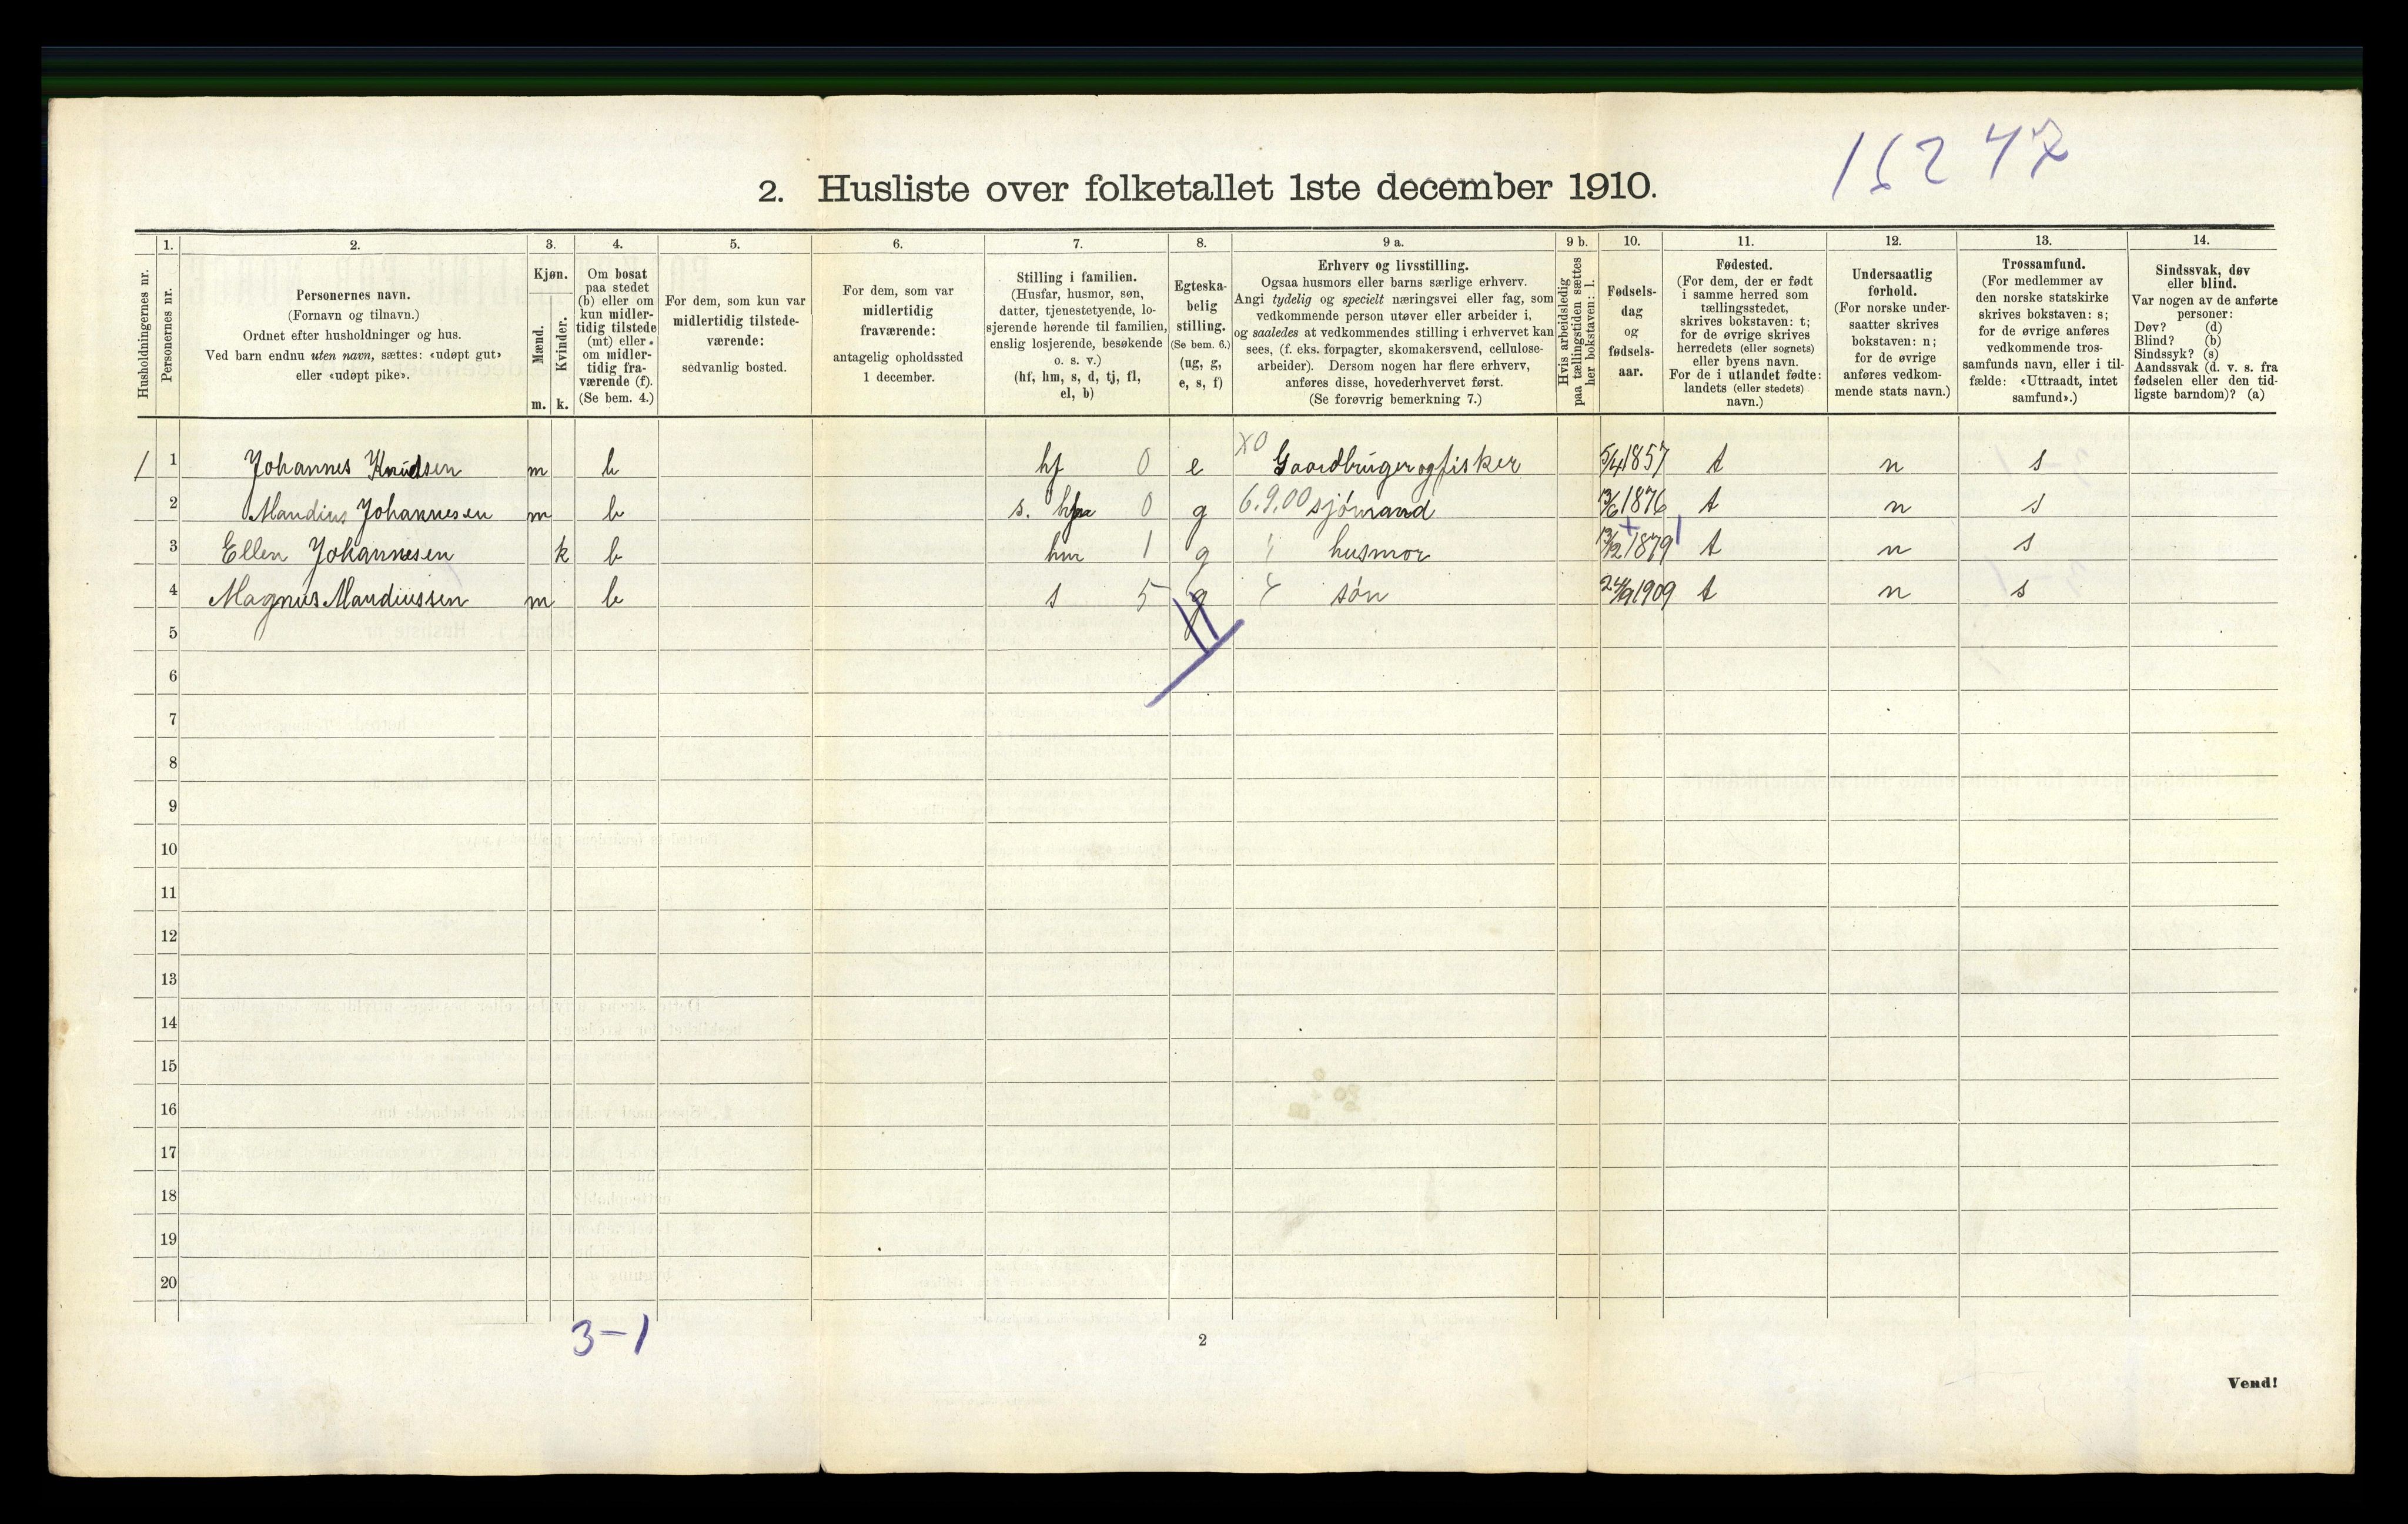 2. Husliste over folketallet 1ste december 1910.
16247
Husholdningernes nr.
1.
Personernes nr.
2.
Personernes navn.
(Fornavn og tilnavn.)
Ordnet efter husholdninger og hus.
Ved barn endnu uten navn, sættes: «udøpt gut»
eller «udøpt pike».
3.
Kjøn.
Mænd.
Kvinder.
m. k.
4.
Om bosat
paa stedet
(b) eller om
kun midler-
tidig tilstede
(mt) eller
om midler-
tidig fra-
værende (f).
(Se bem. 4.)
5.
For dem, som kun var
midlertidig tilstede-
værende:
sedvanlig bosted.
6.
For dem, som var
midlertidig
fraværende:
antagelig opholdssted
1 december.
7.
Stilling i familien.
(Husfar, husmor, søn,
datter, tjenestetyende, lo-
sjerende hørende til familien,
enslig losjerende, besøkende
o. s. v.)
(hf, hm, s, d, tj, fl,
el, b)
8.
Egteska-
belig
stilling.
(Se bem. 6.)
(ug, g,
e, s, f)
9 a.
Erhverv og livsstilling.
Ogsaa husmors eller barns særlige erhverv.
Angi tydelig og specielt næringsvei eller fag, som
vedkommende person utøver eller arbeider i,
og saaledes at vedkommendes stilling i erhvervet kan
sees, (f. eks. forpagter, skomakersvend, cellulose-
arbeider). Dersom nogen har flere erhverv,
anføres disse, hovederhvervet først.
(Se forøvrig bemerkning 7.)
9 b.
Hvis arbeidsledig
paa tællingstiden sættes
her bokstaven: l.
10.
Fødsels-
dag
og
fødsels-
aar.
11.
Fødested.
(For dem, der er født
i samme herred som
tællingsstedet,
skrives bokstaven: t;
for de øvrige skrives
herredets (eller sognets)
eller byens navn.
For de i utlandet fødte:
landets (eller stedets)
navn.)
12.
Undersaatlig
forhold.
(For norske under-
saatter skrives
bokstaven: n;
for de øvrige
anføres vedkom-
mende stats navn.)
13.
Trossamfund.
(For medlemmer av
den norske statskirke
skrives bokstaven: s;
for de øvrige anføres
vedkommende tros-
samfunds navn, eller i til-
fælde: «Uttraadt, intet
samfund».)
14.
Sindssvak, døv
eller blind.
Var nogen av de anførte
personer:
Døv? (d)
Blind? (b)
Sindssyk? (s)
Aandssvak (d. v. s. fra
fødselen eller den tid-
ligste barndom)? (a)
1 1 Johannes Knudsen m b hf 0 e X0 Gaardbruger og fisker 5/4 1857 t n s
2 Mandius Johannesen m b s. 0 g 6.9.00 sjömand 13/6 1876 t n s
3 Ellen Johannesen k b hm 1 g husmor 13/2 1879 t n s
4 Magnus Mandiussen m b s 5 g søn 24/9 1909 t n s
5
6
7
8
9
10
11
12
13
14
15
16
17
18
19
20
3-1
2
Vend!